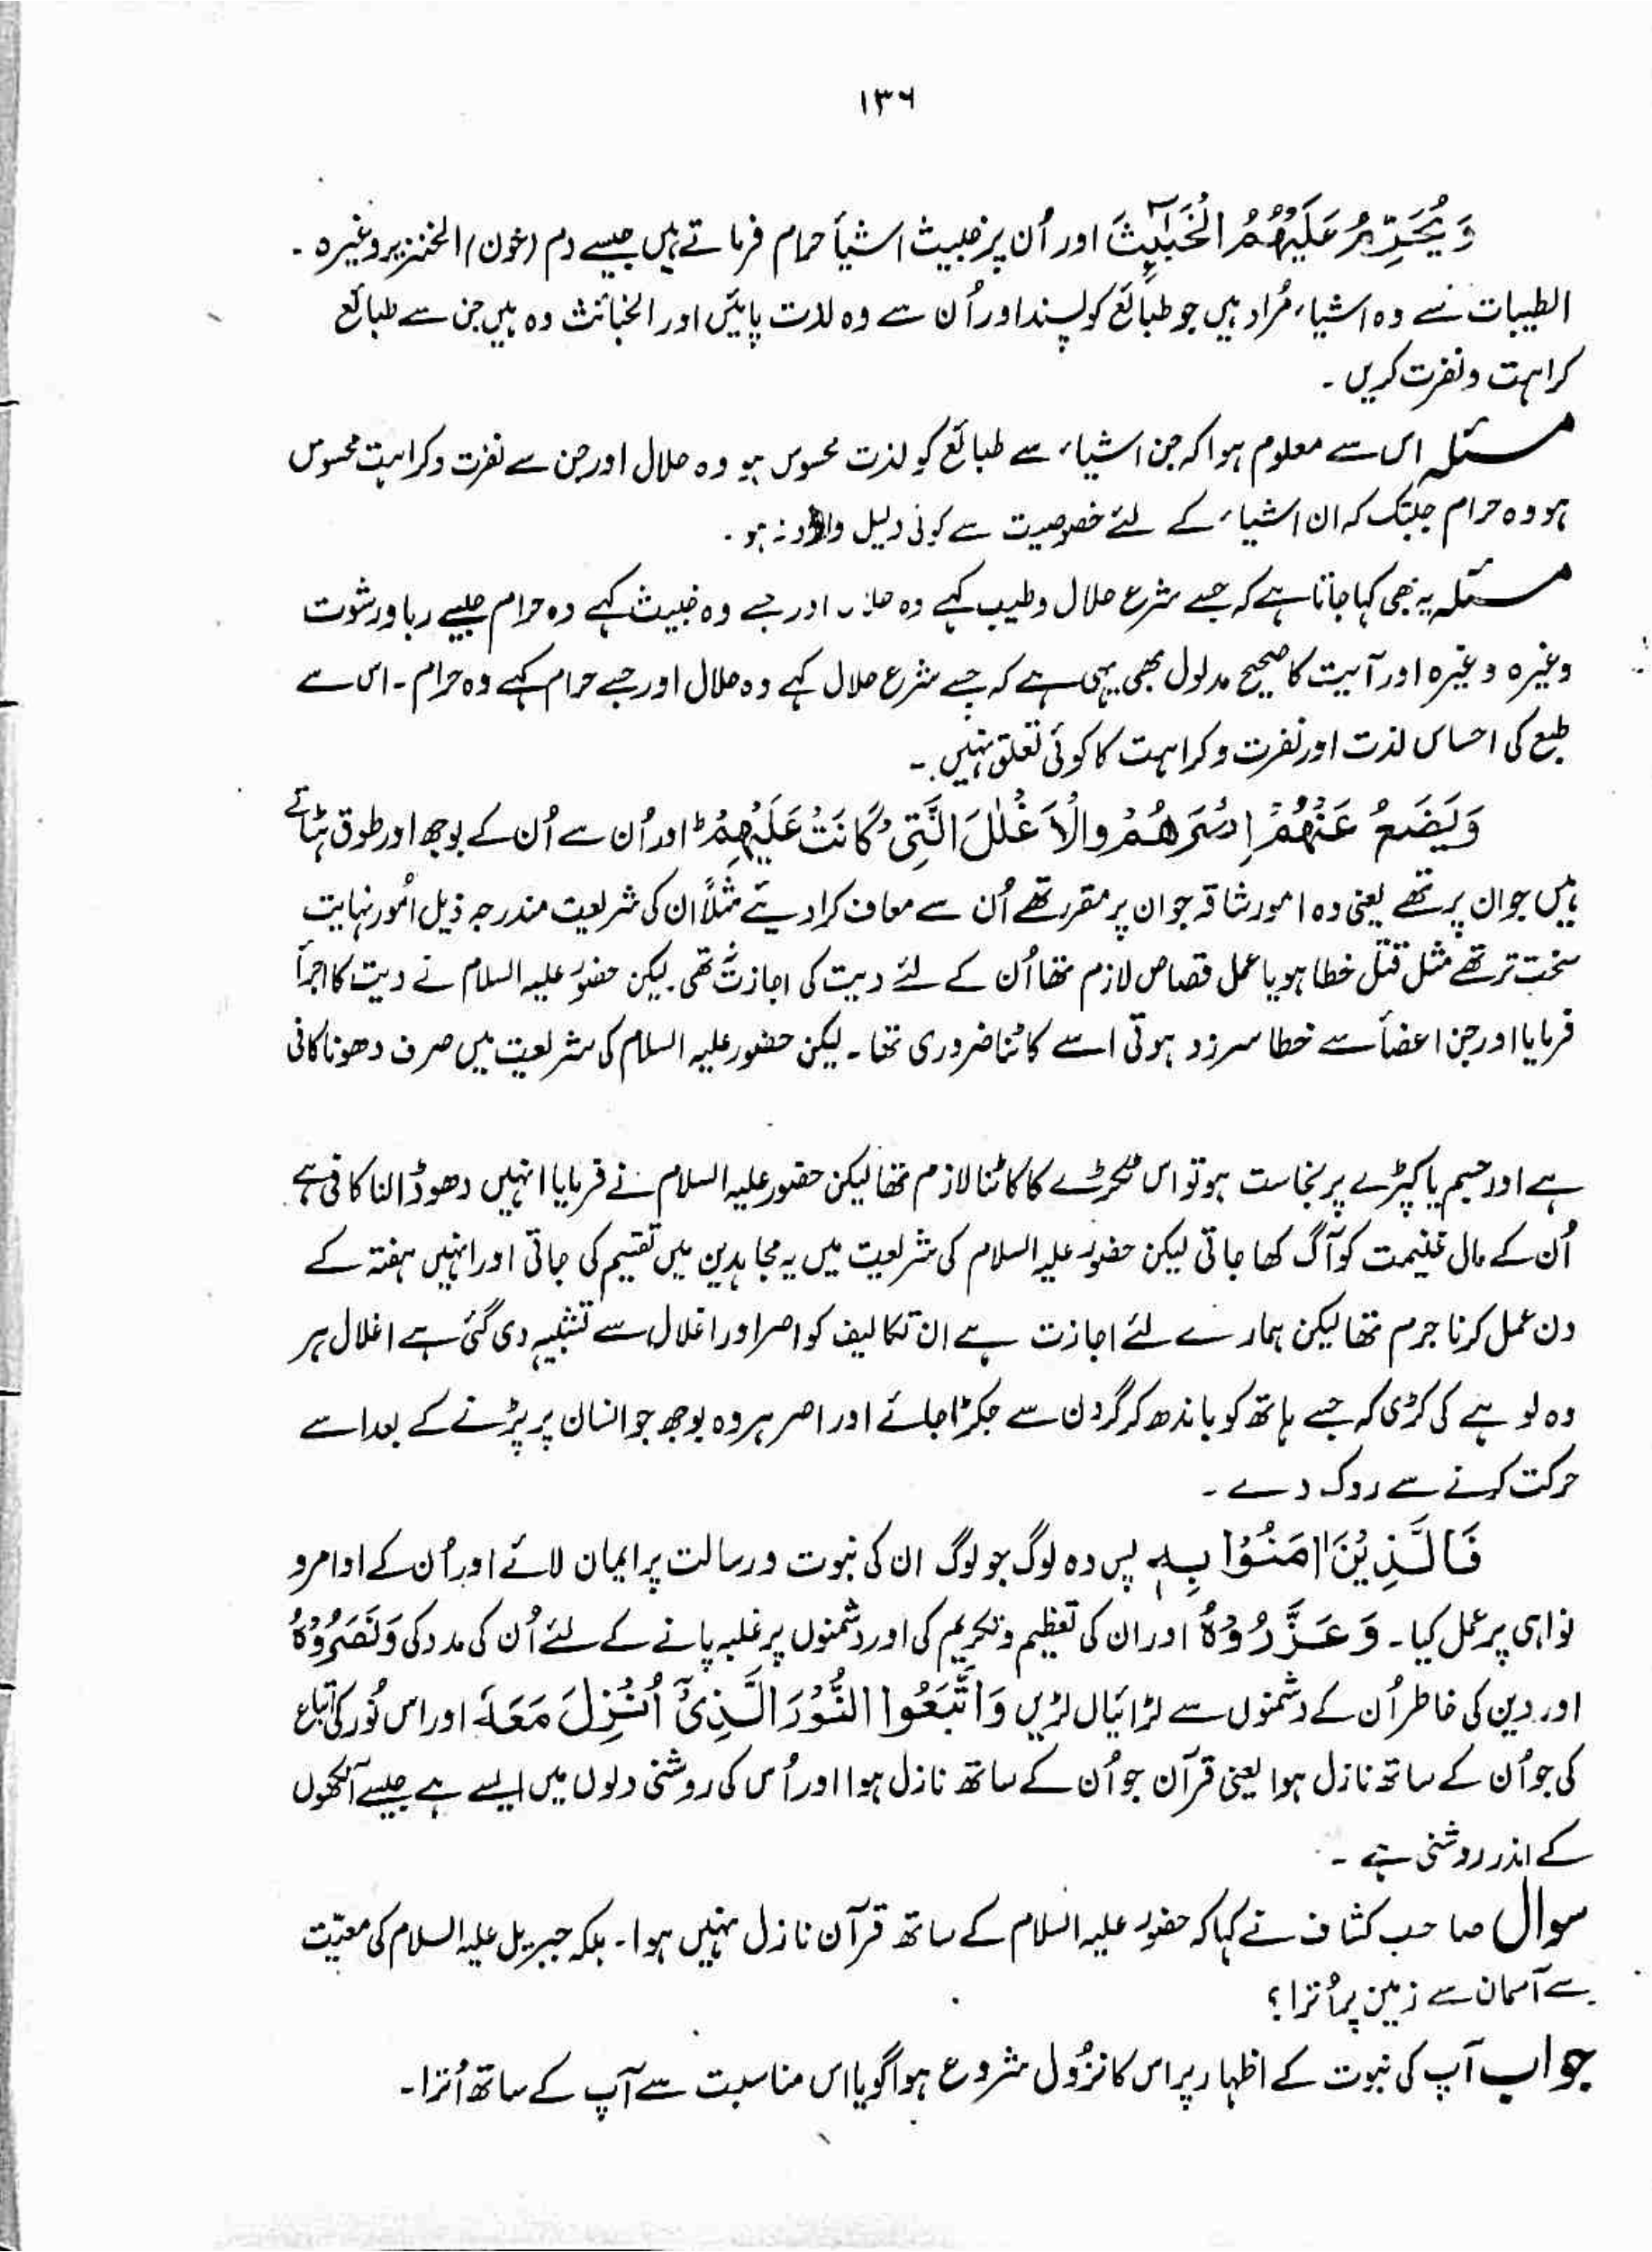 ۱۳۶
وَيُحَرِّمُ عَلَيْهِمُ الْخَبَائِثَ اور اُن پر خبیث اشیأ حرام فرماتے ہیں جیسے دم (خون) الخنزیر وغیرہ ۔
الطیبات سے وہ اشیاء مُراد ہیں جو طبائع کو پسند اور اُن سے وہ لذت پائیں اور الخبائث وہ ہیں جن سے طبائع
کراہت ونفرت کریں ۔
مسئلہ اس سے معلوم ہوا کہ جن اشیاء سے طبائع کو لذت محسوس ہو وہ حلال اور جن سے نفرت وکراہت محسوس
ہو وہ حرام جبتک کہ ان اشیاء کے لئے خصوصیت سے کوئی دلیل وارد نہ ہو ۔
مسئلہ یہ بھی کہا جاتا ہے کہ جسے شرع حلال وطیب کہے وہ حلال اور جسے وہ خبیث کہے وہ حرام جیسے ربا ورشوت
وغیرہ وغیرہ اور آیت کا صحیح مدلول بھی یہی ہے کہ جسے شرع حلال کہے وہ حلال اور جسے حرام کہے وہ حرام ۔ اس سے
طبع کی احساس لذت اور نفرت وکراہت کا کوئی تعلق نہیں ۔
وَيَضَعُ عَنْهُمْ اِصْرَهُمْ والْاَغْلٰلَ الَّتِىْ كَانَتْ عَلَيْهِمْ ط اور اُن سے اُن کے بوجھ اور طوق ہٹاتے
ہیں جو ان پر تھے یعنی وہ امور شاقہ جو ان پر مقرر تھے اُن سے معاف کرا دیئے مثلاً ان کی شریعت مندرجہ ذیل اُمور نہایت
سخت تر تھے مثل قتل خطا ہو یا عمل قصاص لازم تھا اُن کے لئے دیت کی اجازت تھی لیکن حضور علیہ السلام نے دیت کا اجرأ
فرمایا اور جن اعضأ سے خطا سرزد ہوتی اسے کاٹنا ضروری تھا ۔ لیکن حضور علیہ السلام کی شریعت میں صرف دھونا کافی
ہے اور جسم یا کپڑے پر نجاست ہو تو اس ٹکڑے کا کاٹنا لازم تھا لیکن حضور علیہ السلام نے فرمایا انہیں دھو ڈالنا کافی ہے
اُن کے مال غنیمت کو آگ کھا جاتی لیکن حضور علیہ السلام کی شریعت میں یہ مجاہدین میں تقسیم کی جاتی اور انہیں ہفتہ کے
دن عمل کرنا جرم تھا لیکن ہمارے لئے اجازت ہے ان تکالیف کو اصر اور اغلال سے تشبیہ دی گئی ہے اغلال ہر
وہ لوہے کی کڑی کہ جسے ہاتھ کو باندھ کر گردن سے جکڑا جائے اور اصر ہر وہ بوجھ جو انسان پر پڑنے کے بعد اسے
حرکت کرنے سے روک دے ۔
فَالَّذِيْنَ اٰمَنُوْا بِهٖ پس وہ لوگ جو لوگ ان کی نبوت ورسالت پر ایمان لائے اور اُن کے اوامر و
نواہی پر عمل کیا ۔ وَعَزَّرُوْهُ اور ان کی تعظیم وتکریم کی اور دشمنوں پر غلبہ پانے کے لئے اُن کی مدد کی وَنَصَرُوْهُ
اور دین کی خاطر اُن کے دشمنوں سے لڑائیاں لڑیں وَاتَّبَعُوا النُّوْرَ الَّذِىْٓ اُنْزِلَ مَعَهٗ اور اس نُور کی اتباع
کی جو اُن کے ساتھ نازل ہوا یعنی قرآن جو اُن کے ساتھ نازل ہوا اور اُس کی روشنی دلوں میں ایسے ہے جیسے آنکھوں
کے اندر روشنی ہے ۔
سوال صاحب کشاف نے کہا کہ حضور علیہ السلام کے ساتھ قرآن نازل نہیں ہوا ۔ بلکہ جبریل علیہ السلام کی معیّت
سے آسمان سے زمین پر اُترا ؟
جواب آپ کی نبوت کے اظہار پر اس کا نزُول شروع ہوا گویا اس مناسبت سے آپ کے ساتھ اُترا ۔